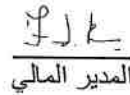 المدير المالي